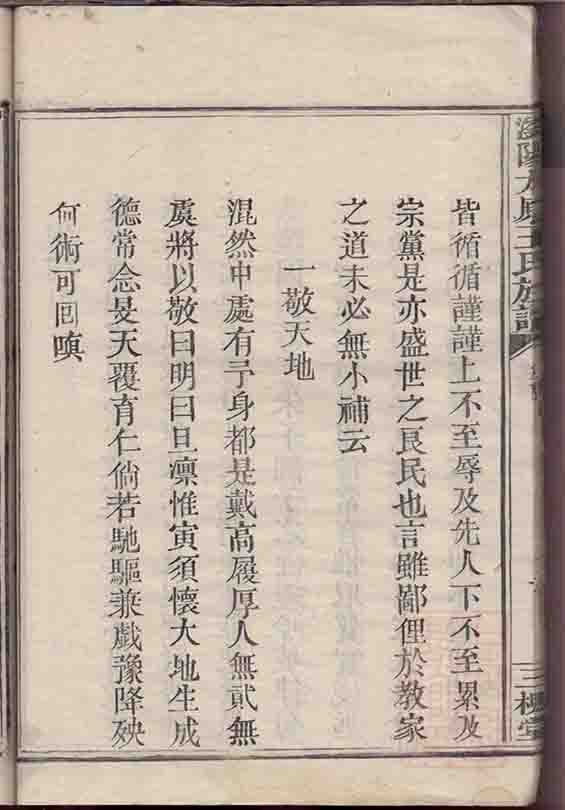 陽太原王氏族譜
三槐堂
皆循循謹謹上不至辱及先人下不至累及
宗黨是亦盛世之良民也言雖鄙俚於教家
之道未必無小補云
一敬天地
混然中處有予身都是戴高履厚人無貳無
虞將以敬曰明曰旦凛惟寅須懷大地生成
德常念旻天覆育仁倘若馳驅兼戲豫降殃
何術可囘嗔